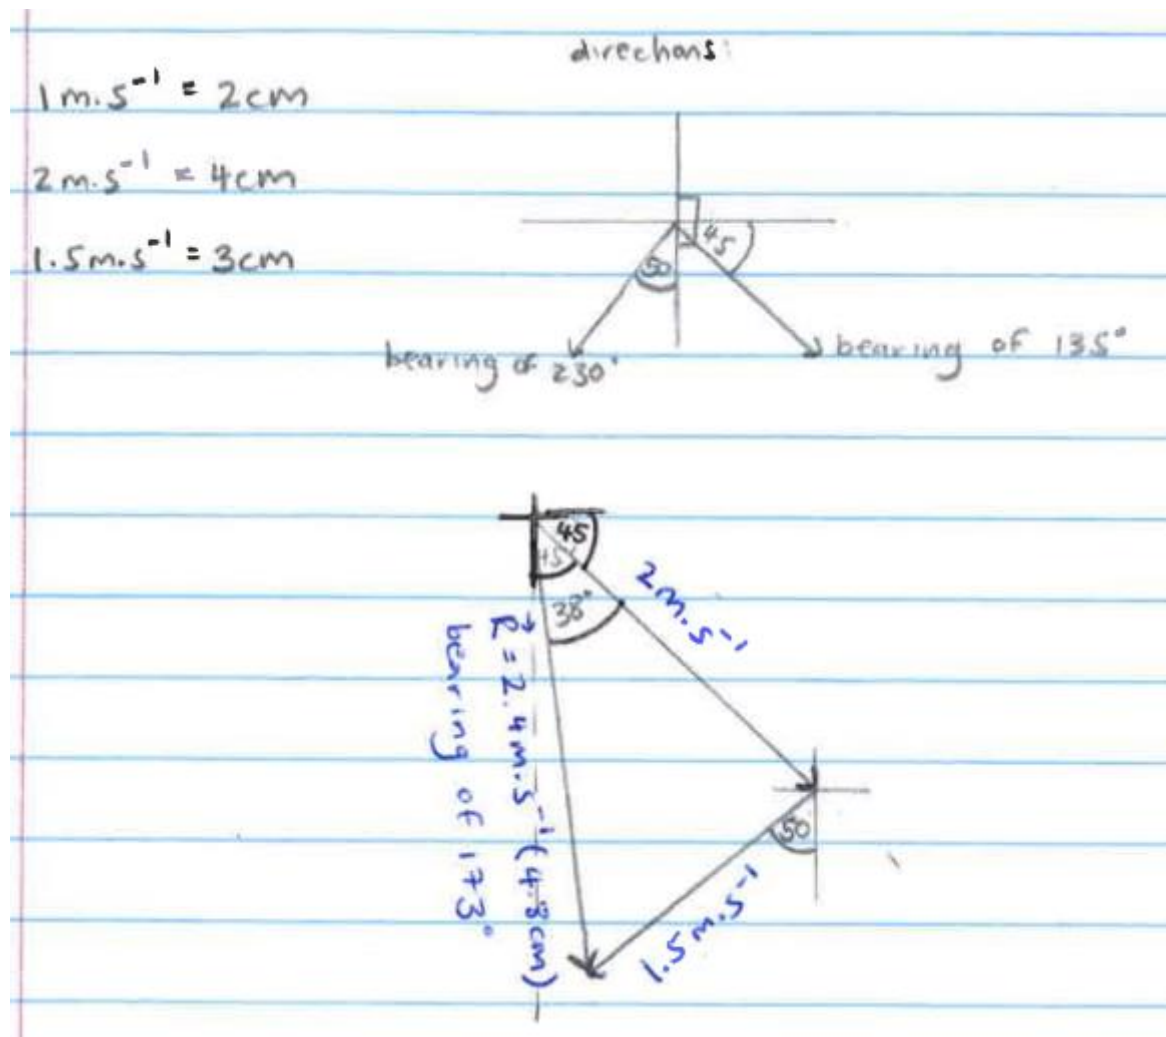 directions:
1m.s⁻¹ = 2cm
2m.s⁻¹ = 4cm
1.5m.s⁻¹ = 3cm
45
50
bearing of 230°
bearing of 135°
45
45
38°
2m.s⁻¹
R⃗ = 2.4m.s⁻¹ (4.8cm)
bearing of 173°
50
1.5m.s⁻¹